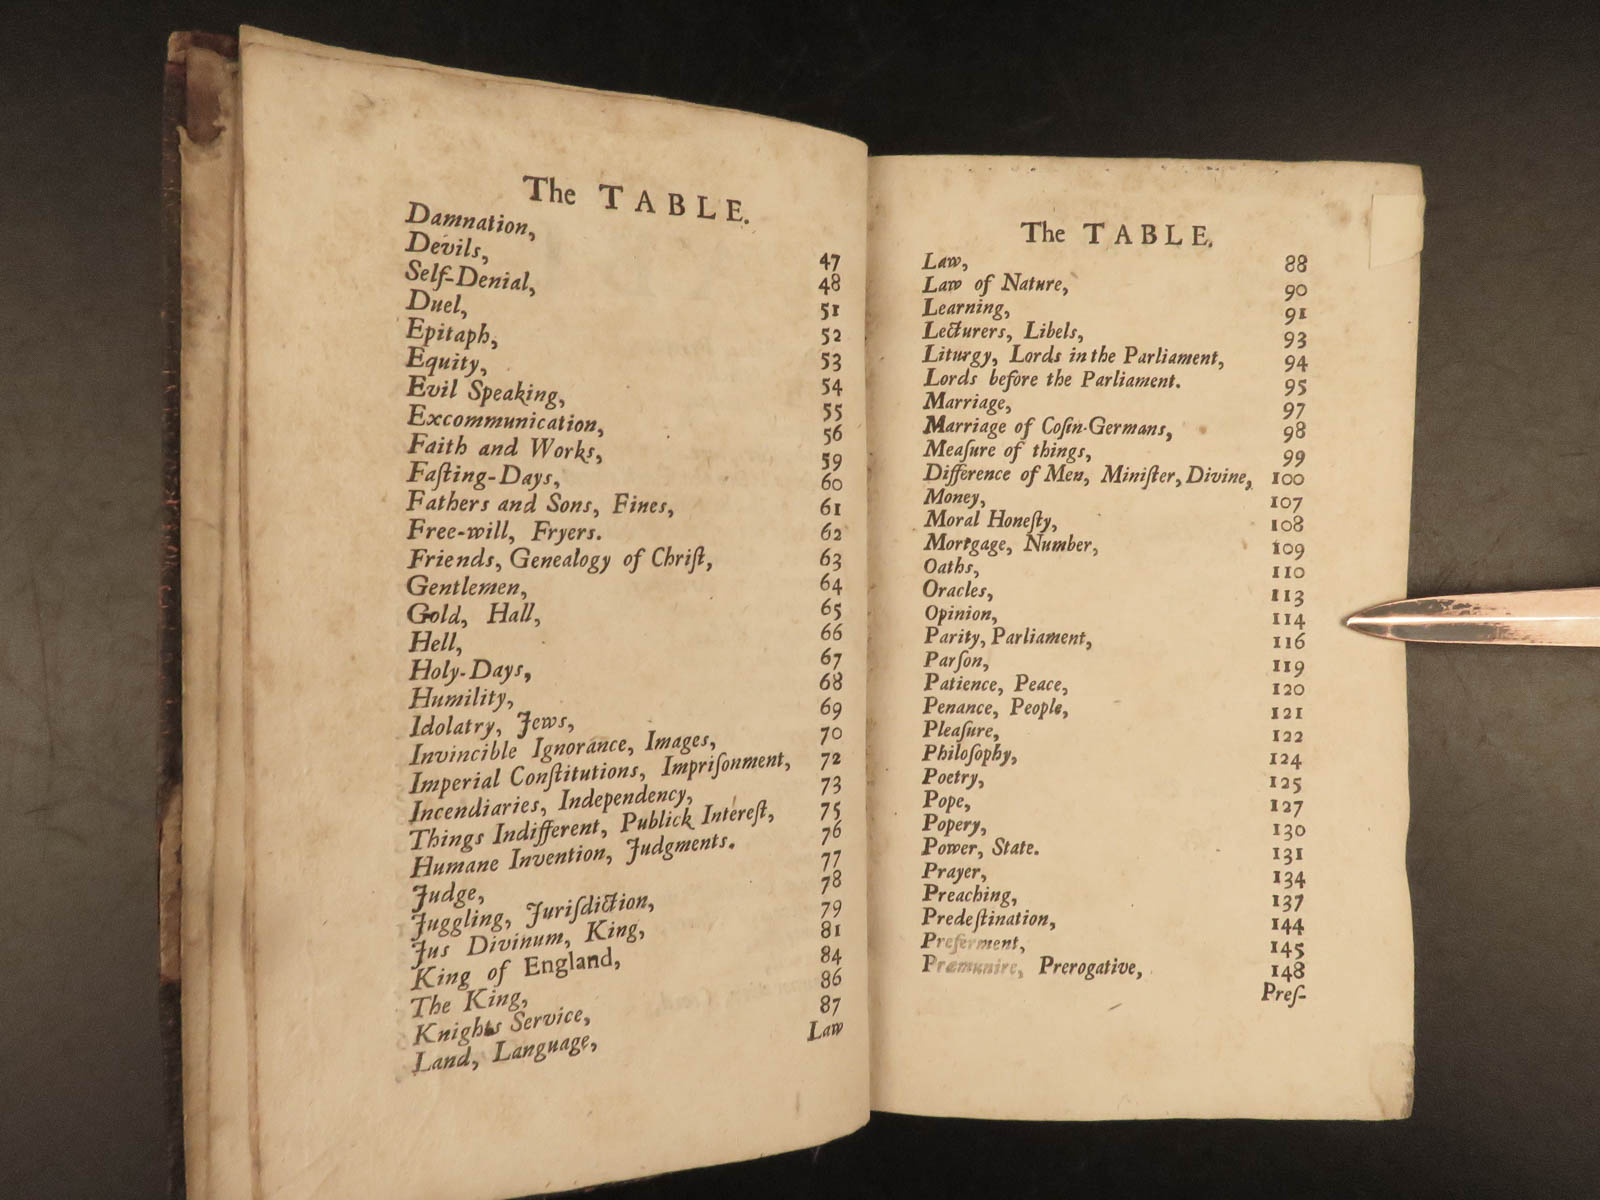 The TABLE.
Damnation, 47
Devils, 48
Self-Denial, 51
Duel, 52
Epitaph, 53
Equity, 54
Evil Speaking, 55
Excommunication, 56
Faith and Works, 59
Faſting-Days, 60
Fathers and Sons, Fines, 61
Free-will, Fryers. 62
Friends, Genealogy of Chriſt, 63
Gentlemen, 64
Gold, Hall, 65
Hell, 66
Holy-Days, 67
Humility, 68
Idolatry, Jews, 69
Invincible Ignorance, Images, 70
Imperial Conſtitutions, Impriſonment, 72
Incendiaries, Independency, 73
Things Indifferent, Publick Intereſt, 75
Humane Invention, Judgments. 76
Judge, 77
Juggling, Juriſdiction, 78
Jus Divinum, King, 79
King of England, 81
The King, 84
Knights Service, 86
Land, Language, 87
Law
The TABLE.
Law, 88
Law of Nature, 90
Learning, 91
Lecturers, Libels, 93
Liturgy, Lords in the Parliament, 94
Lords before the Parliament. 95
Marriage, 97
Marriage of Coſin-Germans, 98
Meaſure of things, 99
Difference of Men, Miniſter, Divine, 100
Money, 107
Moral Honeſty, 108
Mortgage, Number, 109
Oaths, 110
Oracles, 113
Opinion, 114
Parity, Parliament, 116
Parſon, 119
Patience, Peace, 120
Penance, People, 121
Pleaſure, 122
Philoſophy, 124
Poetry, 125
Pope, 127
Popery, 130
Power, State. 131
Prayer, 134
Preaching, 137
Predeſtination, 144
Preferment, 145
Præmunire, Prerogative, 148
Preſ-